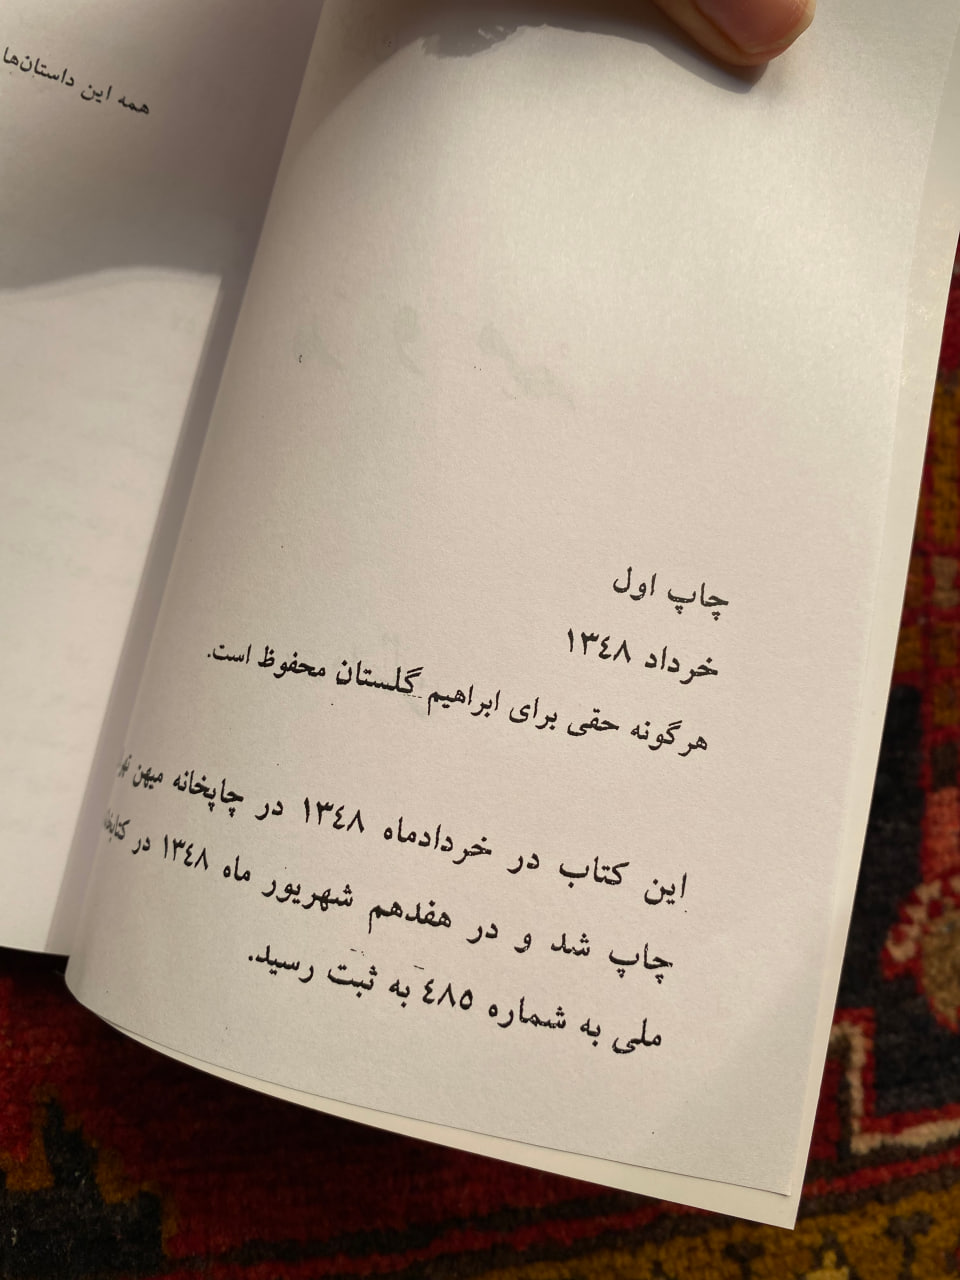 چاپ اول
خرداد ۱۳٤۸
هرگونه حقی برای ابراهیم گلستان محفوظ است.
این کتاب در خردادماه ۱۳٤۸ در چاپخانه میهن
چاپ شد و در هفدهم شهریور ماه ۱۳٤۸ در
ملی به شماره ٤۸۵ به ثبت رسید.
همه این داستان‌ها